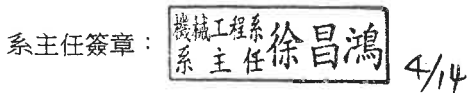 系主任簽章：機械工程系系主任徐昌鴻 4/14